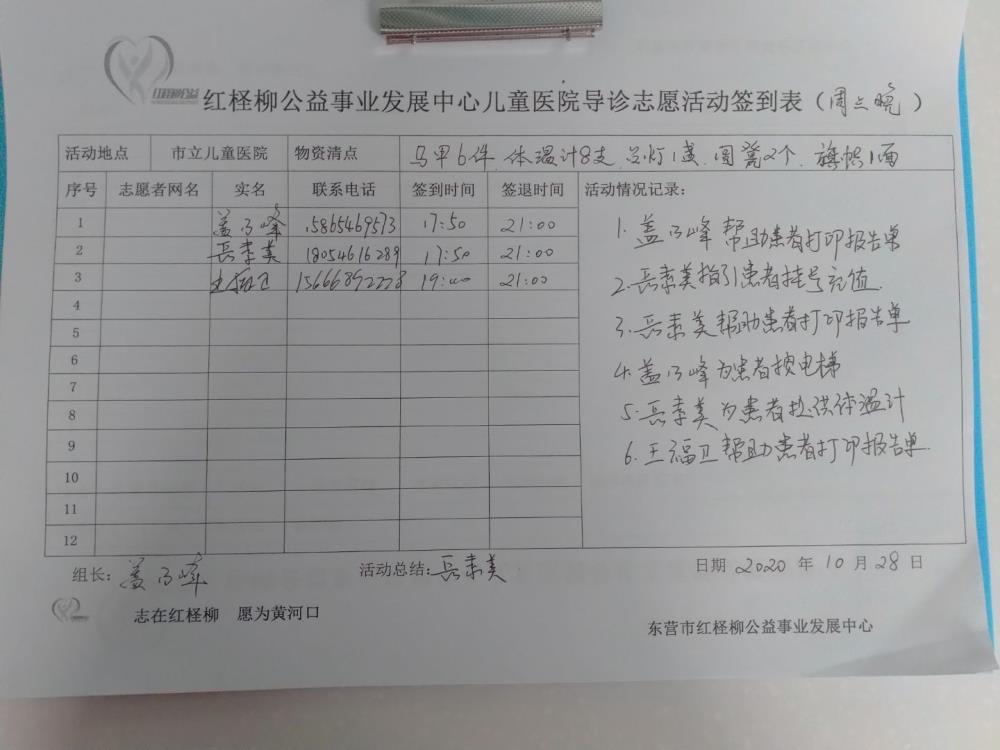 红柽柳公益事业发展中心儿童医院导诊志愿活动签到表（周三晚）
活动地点 市立儿童医院 物资清点 马甲6件 体温计8支 台灯1盏 圆凳2个 旗帜1面
序号 志愿者网名 实名 联系电话 签到时间 签退时间 活动情况记录：
1 盖乃峰 15865469573 17:50 21:00
2 岳素美 18054616289 17:50 21:00
3 王福卫 15666892228 19:00 21:00
4
5
6
7
8
9
10
11
12
1. 盖乃峰帮助患者打印报告单
2. 岳素美指引患者挂号充值
3. 岳素美帮助患者打印报告单
4. 盖乃峰为患者按电梯
5. 岳素美为患者提供体温计
6. 王福卫帮助患者打印报告单
组长：盖乃峰 活动总结：岳素美 日期 2020 年 10 月 28 日
志在红柽柳 愿为黄河口
东营市红柽柳公益事业发展中心